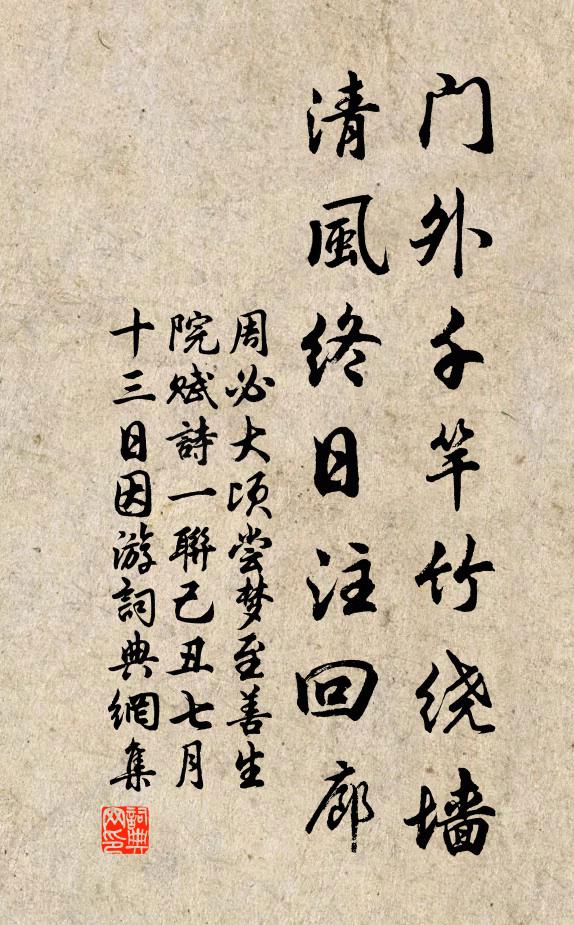 门外千竿竹绕墙
清風终日注回廊
周必大顷尝梦至善生
院赋詩一聯己丑七月
十三日因游詞典網集
詞典網印